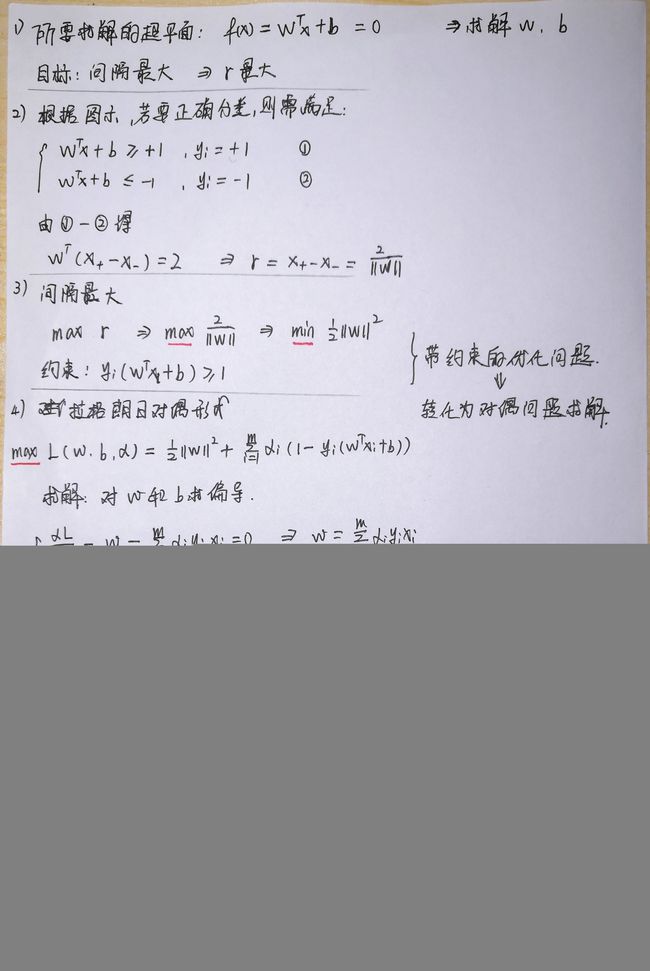 1) 所要求解的超平面: f(x) = wᵀx + b = 0 ⇒ 求解 w, b
目标: 间隔最大 ⇒ r 最大
2) 根据图示, 若要正确分类, 则需满足:
{ wᵀx + b ≥ +1 , yᵢ = +1 ①
wᵀx + b ≤ -1 , yᵢ = -1 ②
由 ① - ② 得
wᵀ(x₊ - x₋) = 2 ⇒ r = x₊ - x₋ = 2/||w||
3) 间隔最大
max r ⇒ max 2/||w|| ⇒ min ½||w||²
约束: yᵢ(wᵀxᵢ + b) ≥ 1
} 带约束的优化问题.
⇓
转化为对偶问题求解.
4) 拉格朗日对偶形式
max L(w. b, α) = ½||w||² + Σᵢ₌₁ᵐ αᵢ(1 - yᵢ(wᵀxᵢ + b))
求解: 对 w 和 b 求偏导.
= w - Σᵐ αᵢyᵢxᵢ = 0 ⇒ w = Σᵐ αᵢyᵢxᵢ